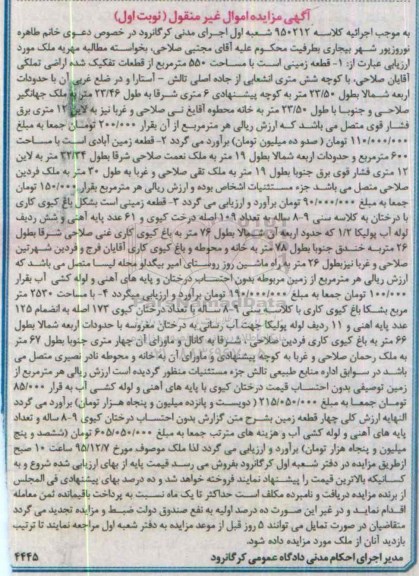 آگهی مزایده اموال غیر منقول (نوبت اول)
به موجب اجرائیه کلاسه ۹۵۰۲۱۲ شعبه اول اجرای مدنی کرگانرود در خصوص دعوی خانم طاهره
نوروزپور شهر بیجاری بطرفیت محکوم علیه آقای مجتبی صلاحی، بخواسته مطالبه مهریه ملک مورد
ارزیابی عبارت از: ۱- قطعه زمینی است با مساحت ۵۵۰ مترمربع از قطعات تفکیک شده اراضی تملکی
آقایان صلاحی، با کوچه شش متری انشعابی از جاده اصلی تالش - آستارا و در ضلع غربی آن با حدودات
اربعه شمالا بطول ۲۳/۵۰ متر به کوچه پیشنهادی ۶ متری شرقا به طول ۲۳/۴۶ متر به ملک جهانگیر
صلاحی و جنوبا با طول ۲۳/۵۰ متر به خانه محطوه آقایغ نی صلاحی و غربا نیز به لاین ۱۲ متری برق
فشار قوی متصل می باشد کـه ارزش ریالی هر مترمربع از آن بقرار ۲۰۰/۰۰۰ تومان جمعا به مبلغ
۱۱۰/۰۰۰/۰۰۰ تومان (صد و ده میلیون تومان) برآورد می گردد ۲- قطعه زمین آبادی است با مساحت
۶۰۰ مترمربع و حدودات اربعه شمالا بطول ۱۹ متر به ملک نعمت صلاحی شرقا بطول ۳۲/۳۴ متر به لاین
۱۲ متری فشار قوی برق جنوبا بطول ۱۹ متر به ملک تقی صلاحی و غربا به طول ۳۰ متر به ملک فردین
صلاحی متصل می باشد جزء مستثنیات اشخاص بوده و ارزش ریالی هر مترمربع بقرار ۱۵۰/۰۰۰ تومان
جمعا به مبلغ ۹۰/۰۰۰/۰۰۰ تومان برآورد و ارزیابی می گردد ۳- قطعه زمینی است بشکل باغ کیوی کاری
با درختان به کلاسه سنی ۹-۸ ساله به تعداد ۱۰۹ اصله درخت کیوی و ۶۱ عدد پایه آهنی و شش ردیف
لوله آب پولیکا ۱/۲ که حدود اربعه آن شمالا بطول ۷۶ متر به باغ کیوی کاری غنی صلاحی شرقا بطول
۲۶ متربه خندق جنوبا بطول ۷۸ متر به خانه و محوطه و باغ کیوی کاری آقایان فرج و فردین شهرتین
صلاحی و غربا نیز بطول ۲۶ متر به راه ماشین روز روستای امیر بیگدلو محله لیسا متصل می باشد که
ارزش ریالی هر مترمربع از زمین مربوطه بدون احتساب درختان و پایه های آهنی و لوله کشی آب بقرار
۱۰۰/۰۰۰ تومان جمعا به مبلغ ۱۹۰/۰۰۰/۰۰۰ تومان برآورد و ارزیابی میگردد ۴- با مساحت ۲۵۳۰ متر
مربع بشکل باغ کیوی کاری با کلاسه سنی ۹-۸ ساله با تعداد درختان کیوی ۱۷۳ اصله به انضمام ۱۲۵
عدد پایه اهنی و ۱۱ ردیف لوله پولیکا جهت آب رسانی به درختان مغروسه با حدودات اربعه شمالا بطول
۶۶ متر به باغ کیوی کاری فردین صلاحی، شرقا به کانال و ماورای آن انهار متری جنوبا بطول ۶۷ متر
به ملک رحمان صلاحی و غربا به کوچه پیشنهادی و ماورای آن به خانه و محوطه نادر نصیری متصل می
باشد در سوابق اداره منابع طبیعی تالش جزء مستثنیات منظور گردیده است ارزش ریالی هر مترمربع از
زمین توصیفی بدون احتساب قیمت درختان کیوی با پایه های آهنی و لوله کشی آب به قرار ۸۵/۰۰۰
تومان جمعا به مبلغ ۲۱۵/۰۵۰/۰۰۰ (دویست و پانزده میلیون و پنجاه هزار تومان) برآورد می گردد
النهایه ارزش کلی چهار قطعه زمین بشرح متن گزارش بدون احتساب درختان کیوی ۹-۸ ساله و تعداد
پایه های آهنی و لوله کشی آب و هزینه های مترتب جمعا به مبلغ ۶۰۵/۰۵۰/۰۰۰ تومان (ششصد و پنج
میلیون و پنجاه هزار تومان) برآورد و ارزیابی می گردد لذا ملک موصوف مورخ ۹۵/۱۲/۷ ساعت ۱۰ صبح
ازطریق مزایده در دفتر شعبه اول کرگانرود بفروش می رسد قیمت پایه از بهای ارزیابی شده شروع و به
کسانیکه بالاترین قیمت را پیشنهاد نمایند فروخته خواهد شد و ده درصد بهای پیشنهادی فی المجلس
از برنده مزایده دریافت و نامبرده مکلف است حداکثر تا یک ماه نسبت به پرداخت باقیمانده ثمن معامله
اقدام نماید و در غیر این صورت ده درصد اولیه به نفع صندوق دولت ضبط و مزایده تجدید می گردد
متقاضیان در صورت تمایل می توانند ۵ روز قبل از موعد مزایده به دفتر شعبه اول مراجعه نمایند تا ترتیب
بازدید آنان از ملک مورد مزایده داده شود.
مدیر اجرای احکام مدنی دادگاه عمومی کرگانرود
۴۴۴۵